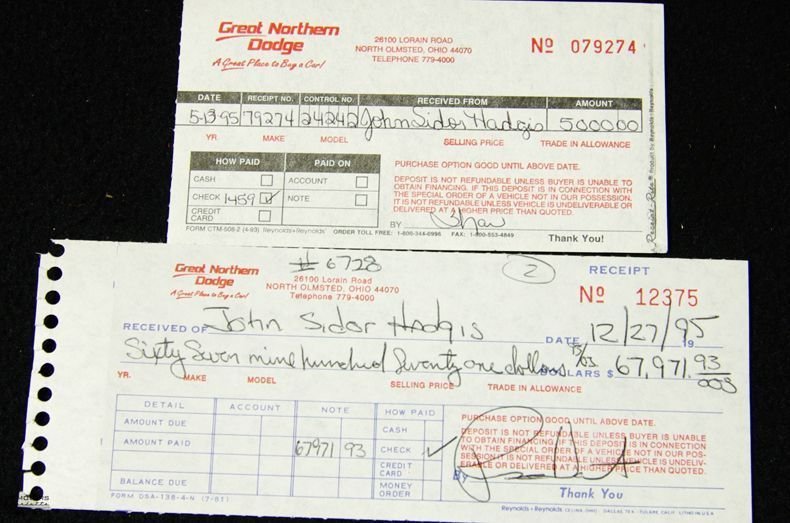 Great Northern
Dodge
A Great Place to Buy a Car!
26100 LORAIN ROAD
NORTH OLMSTED, OHIO 44070
TELEPHONE 779-4000
Nº 079274
DATE RECEIPT NO. CONTROL NO. RECEIVED FROM AMOUNT
5-13-95 79274 24242 John Sidor Hadgis 5000 00
YR. MAKE MODEL SELLING PRICE TRADE IN ALLOWANCE
HOW PAID PAID ON
CASH ACCOUNT
CHECK 1459 NOTE
CREDIT
CARD
PURCHASE OPTION GOOD UNTIL ABOVE DATE.
DEPOSIT IS NOT REFUNDABLE UNLESS BUYER IS UNABLE TO
OBTAIN FINANCING. IF THIS DEPOSIT IS IN CONNECTION WITH
THE SPECIAL ORDER OF A VEHICLE NOT IN OUR POSSESSION.
IT IS NOT REFUNDABLE UNLESS VEHICLE IS UNDELIVERABLE OR
DELIVERED AT A HIGHER PRICE THAN QUOTED.
BY
FORM CTM-508-2 (4-93) Reynolds+Reynolds ORDER TOLL FREE: 1-800-344-0996 FAX: 1-800-553-4849 Thank You!
Great Northern
Dodge
A Great Place to Buy a Car!
# 6728
26100 Lorain Road
NORTH OLMSTED, OHIO 44070
Telephone 779-4000
2
RECEIPT
Nº 12375
RECEIVED OF John Sidor Hadgis DATE 12/27/95
19
Sixty Seven nine hundred Seventy one dollars 93 DOLLARS $ 67,971.93
YR. MAKE MODEL SELLING PRICE TRADE IN ALLOWANCE
DETAIL ACCOUNT NOTE HOW PAID
AMOUNT DUE CASH
AMOUNT PAID 67971 93 CHECK ✓
CREDIT
CARD
BALANCE DUE MONEY
ORDER
PURCHASE OPTION GOOD UNTIL ABOVE DATE.
DEPOSIT IS NOT REFUNDABLE UNLESS BUYER IS UNABLE
TO OBTAIN FINANCING. IF THIS DEPOSIT IS IN CONNECTION
WITH THE SPECIAL ORDER OF A VEHICLE NOT IN OUR POS-
SESSION IT IS NOT REFUNDABLE UNLESS VEHICLE IS UNDELIV-
ERABLE OR DELIVERED AT A HIGHER PRICE THAN QUOTED.
By
Thank You
FORM DSA-138-4-N (7-81) Reynolds+Reynolds CELINA, OHIO DALLAS, TEX TULARE, CALIF LITHO IN U.S.A.